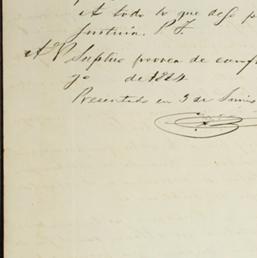 A todo lo que dejo p
justicia. P. J.
A V. Suplico provea de conf
go de 1864
Presentado en 3 de Junio